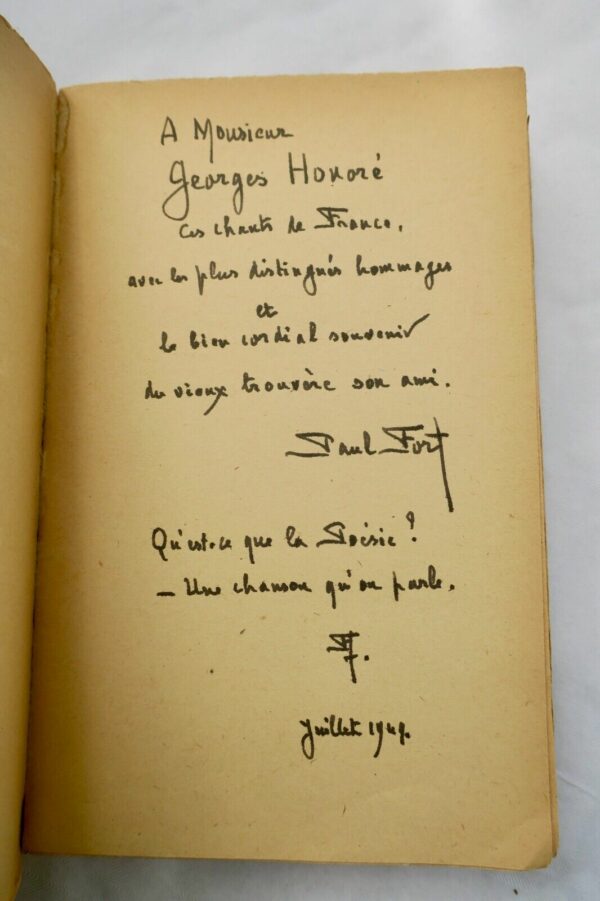 A Monsieur
Georges Honoré
Ces chants de France,
avec les plus distingués hommages
et
le bien cordial souvenir
du vieux trouvère son ami.
Paul Fort
Qu'est-ce que la Poésie ?
— Une chanson qu'on parle.
PF.
Juillet